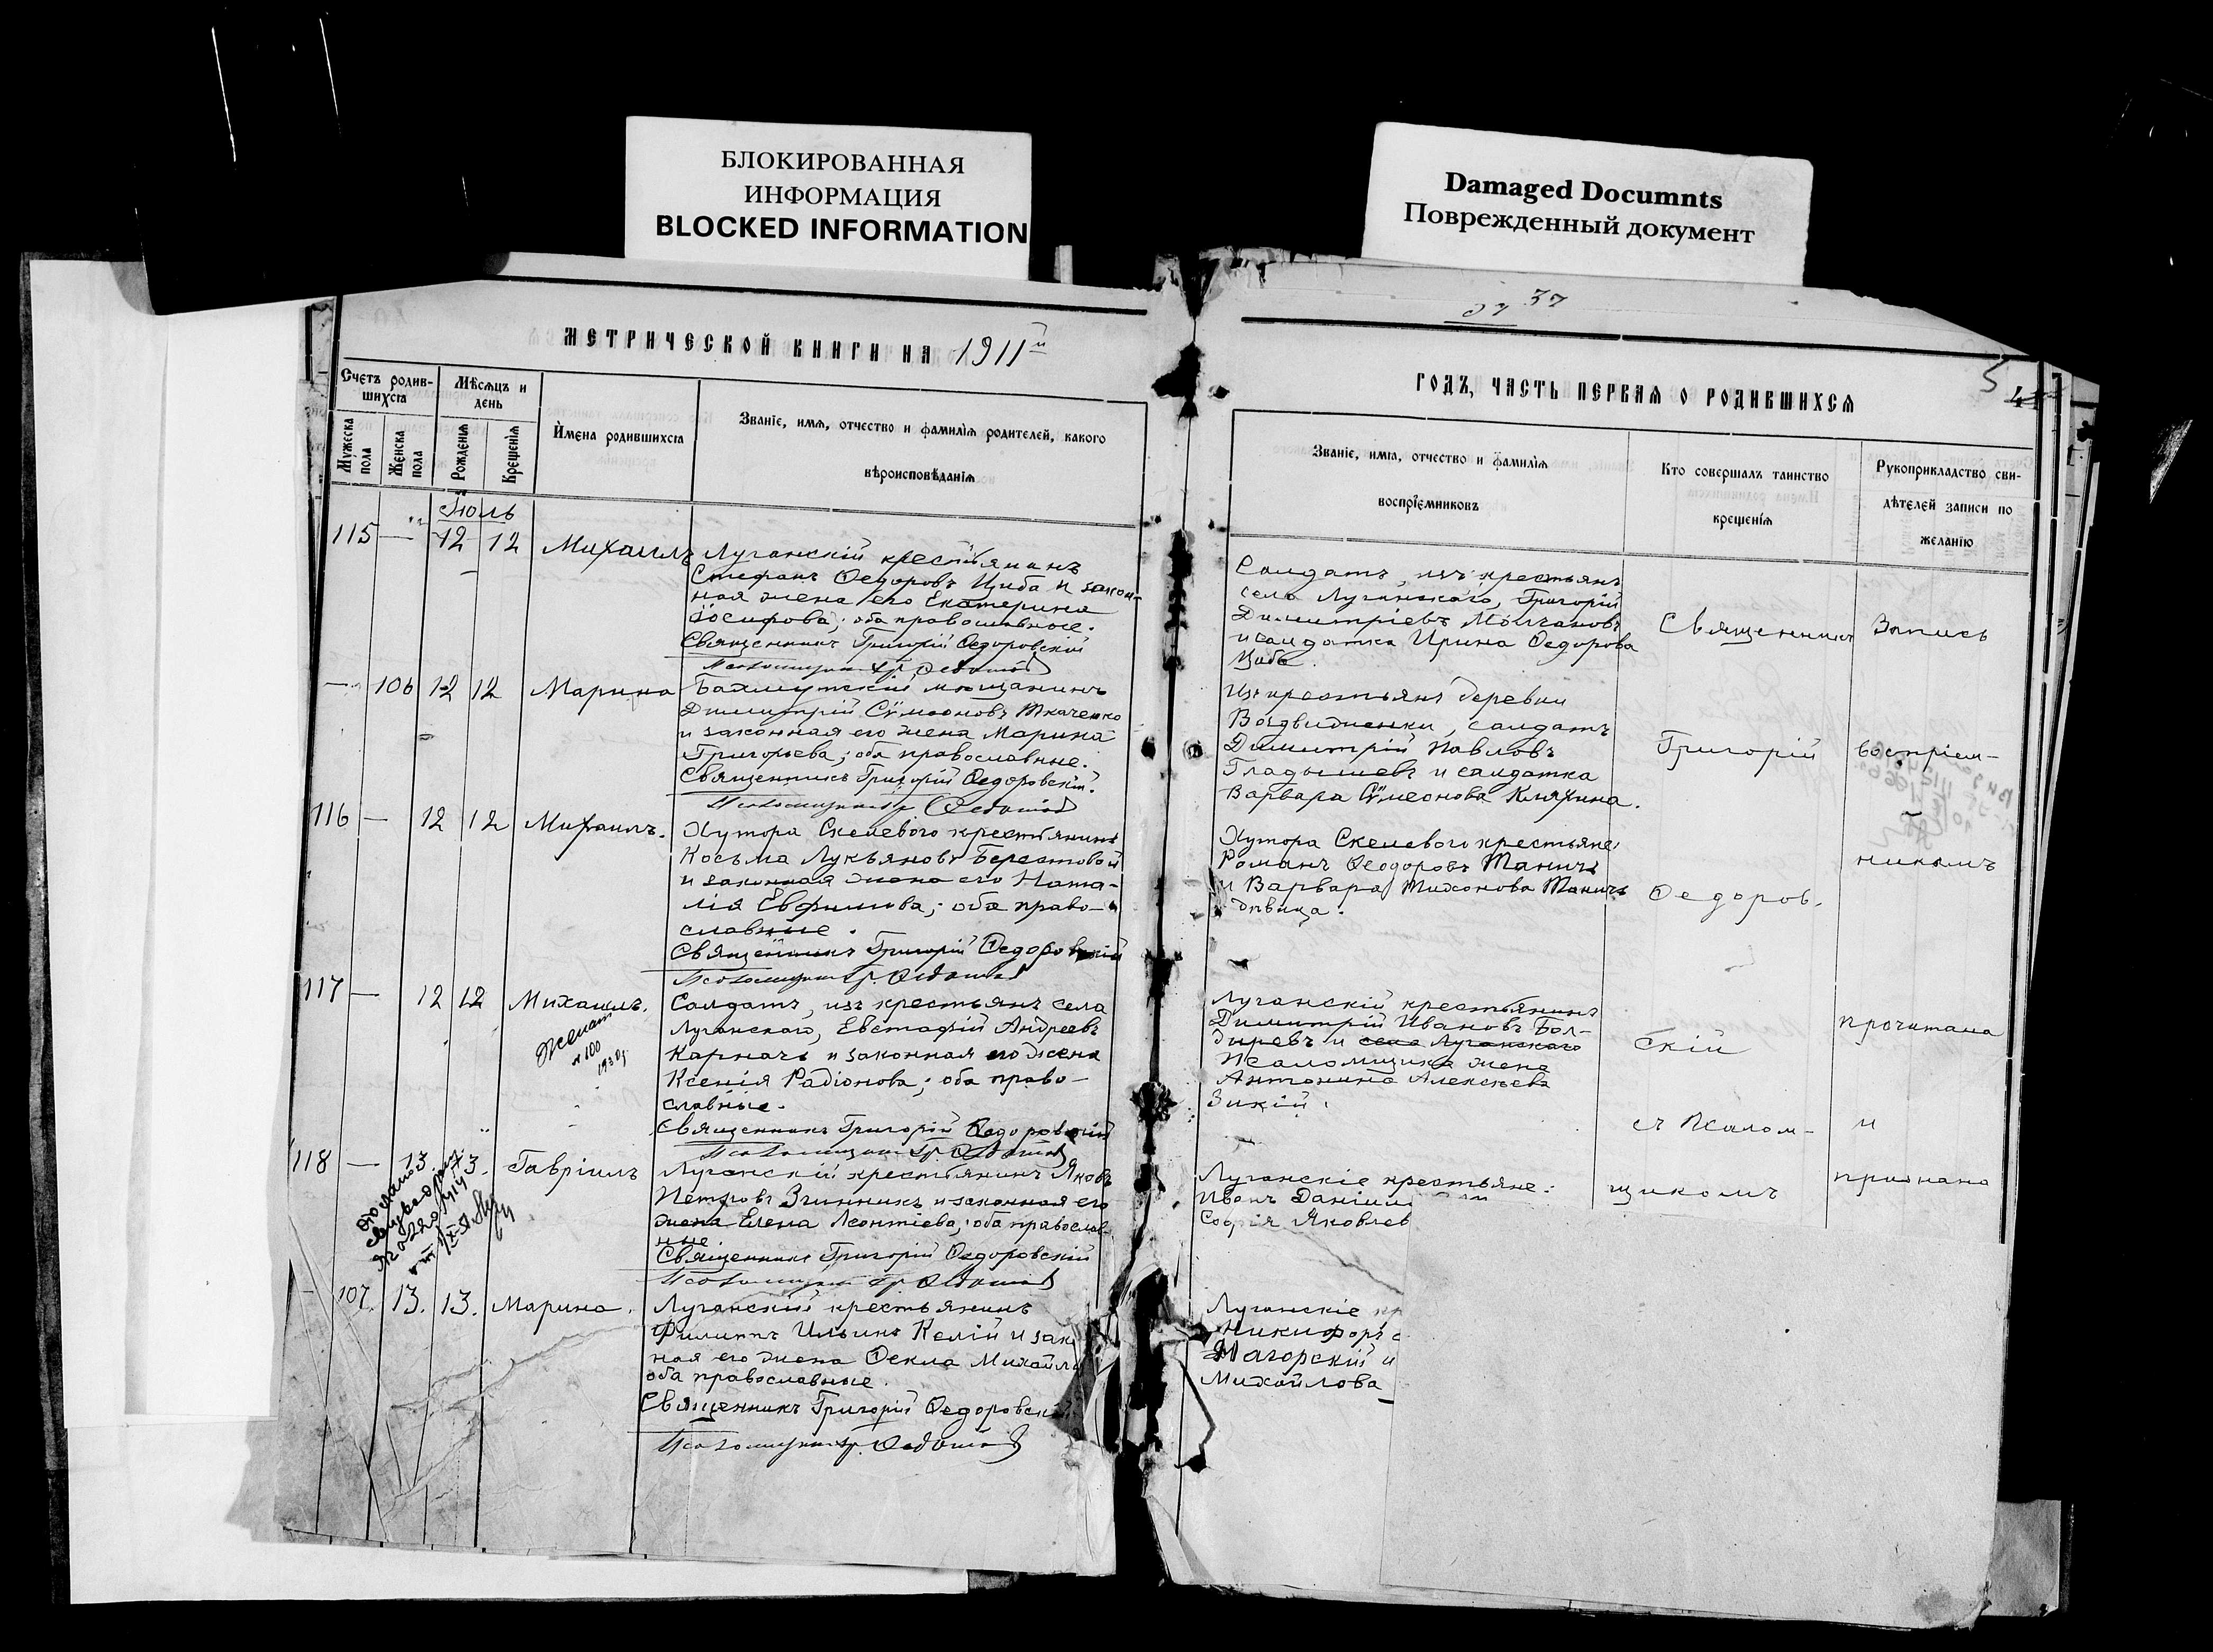 БЛОКИРОВАННАЯ
ИНФОРМАЦИЯ
BLOCKED INFORMATION
Damaged Documnts
Поврежденный документ
37
МЕТРИЧЕСКОЙ КНИГИ НА 1911й
Счетъ родив-
шихся
Мѣсяцъ и
день
Мужеска
пола
Женска
пола
Рожденія
Крещенія
Имена родившихся
Званіе, имя, отчество и фамилія родителей, какого
вѣроисповѣданія
Іюль
115 — 12 12 Михаилъ
Луганскій крестьянинъ
Стефанъ Ѳедоровъ Цыба и закон-
ная жена его Екатерина
Іосифова; оба православные.
Священникъ Григорій Ѳедоровскій
Псаломщикъ
— 106 12 12 Марина
Бахмутскій мѣщанинъ
Димитрій Сѵмеоновъ Ткаченко
и законная его жена Марина
Григорьева; оба православные.
Священникъ Григорій Ѳедоровскій.
Псаломщикъ
116 — 12 12 Михаилъ.
Хутора Скелевого крестьянинъ
Косьма Лукьяновъ Берестовой
и законная жена его Ната-
лія Евфимова; оба право-
славные.
Священникъ Григорій Ѳедоровскій
Псаломщикъ
117 — 12 12 Михаилъ.
Женат
№ 100
Солдатъ, изъ крестьянъ села
Луганскаго, Евстафій Андреевъ
Карначъ и законная его жена
Ксенія Радіонова; оба право-
славные.
Священникъ Григорій Ѳедоровскій
Псаломщикъ
118 — 13. 13. Гавріилъ
Луганскій крестьянинъ Яковъ
Петровъ Зчинникъ и законная его
жена Елена Леонтіева; оба православ-
ные
Священникъ Григорій Ѳедоровскій
Псаломщикъ
— 107. 13. 13. Марина.
Луганскій крестьянинъ
Филиппъ Ильинъ Келій и зак
ная его жена Ѳекла Михайло
оба православные.
Священникъ Григорій Ѳедоровск
Псаломщикъ
ГОДЪ, ЧАСТЬ ПЕРВАЯ О РОДИВШИХСЯ
5
Званіе, имя, отчество и фамилія
воспріемниковъ
Кто совершалъ таинство
крещенія
Рукоприкладство сви-
дѣтелей записи по
желанію
Солдатъ, изъ крестьянъ
села Луганскаго, Григорій
Димитріевъ Молчановъ
и солдатка Ирина Ѳедорова
Цыба.
Изъ крестьянъ деревни
Воздвиженки, солдатъ
Димитрій Павловъ
Гладышевъ и солдатка
Варвара Сѵмеонова Кляхина.
Хутора Скелевого крестьяне:
Романъ Ѳеодоровъ Таничъ
и Варвара Тихонова Таничъ
дѣвица.
Луганскій крестьянинъ
Димитрій Ивановъ Бол-
дыревъ и села Луганскаго
Псаломщика жена
Антонина Алексѣева
Зикій.
Луганскіе крестьяне:
Иванъ Даніил
Софія Яковлев
Луганскіе кр
Никифоръ
Нагорскій и
Михайлова
Священникъ
Григорій
Ѳедоров-
скій
съ Псалом-
щикомъ
Запись
воспріем-
никомъ
прочитана
и
признана